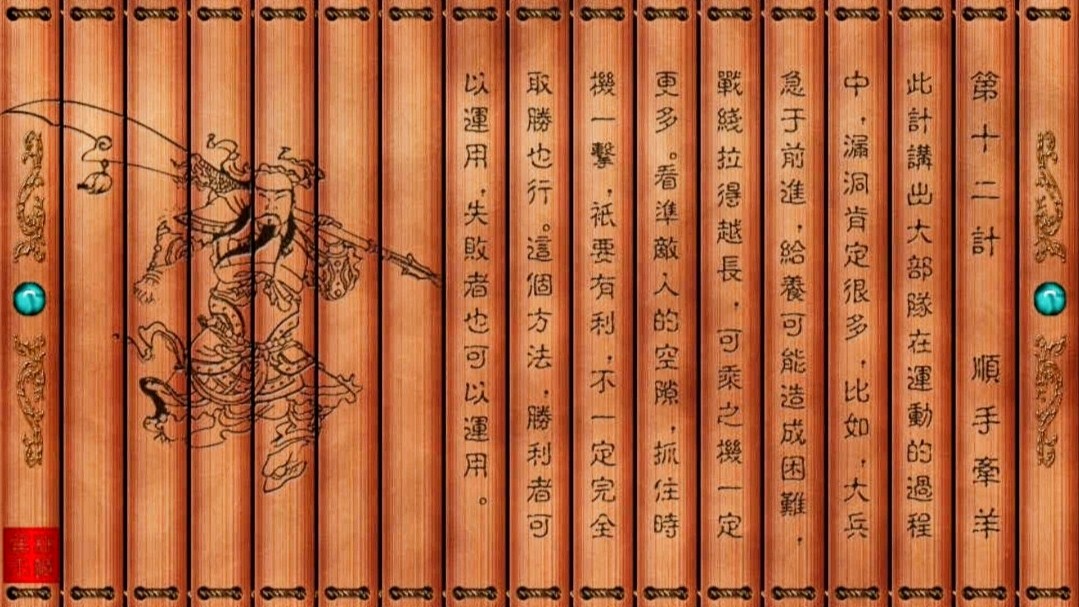 第十二計 順手牽羊
此計講出大部隊在運動的過程
中，漏洞肯定很多，比如，大兵
急于前進，給養可能造成困難，
戰綫拉得越長，可乘之機一定
更多。看準敵人的空隙，抓住時
機一擊，衹要有利，不一定完全
取勝也行。這個方法，勝利者可
以運用，失敗者也可以運用。